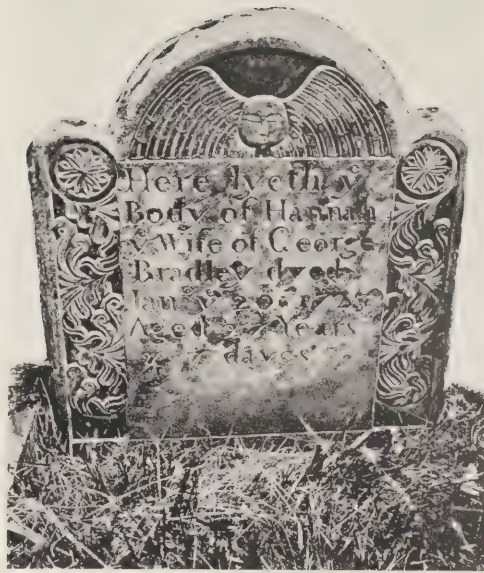 Here lyeth yͤ
Body of Hannah
yͤ Wife of George
Bradley dyed
Jan yͤ 20
Aged Years
dayes